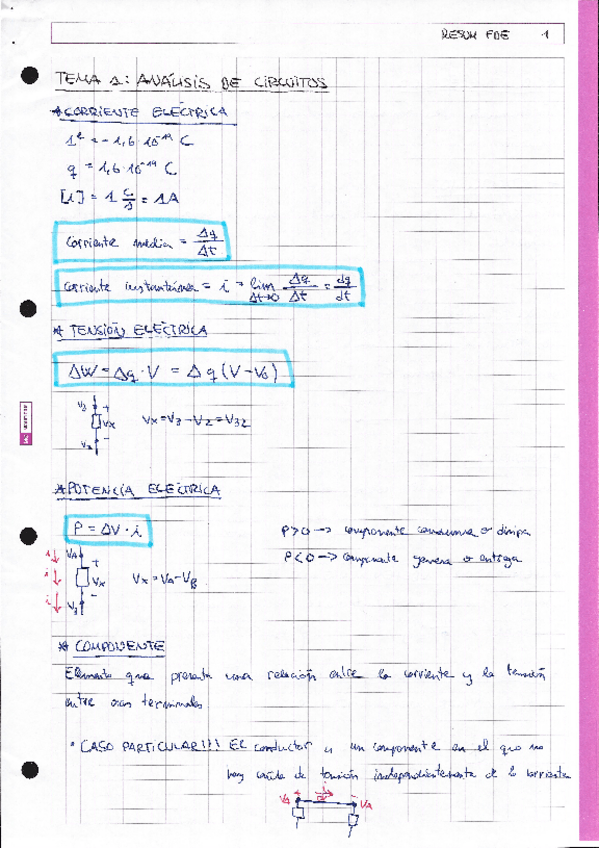 RESUM FDE 1
TEMA 1: ANÁLISIS DE CIRCUITOS
* CORRIENTE ELÉCTRICA
1e = -1,6·10^-19 C
q = 1,6·10^-19 C
[i] = 1 C/s = 1A
Corriente media = Δq/Δt
Corriente instantánea = i = lim Δt→0 Δq/Δt = dq/dt
* TENSIÓN ELÉCTRICA
ΔW = Δq·V = Δq(V-V0)
V3 +
Vx Vx = V3 - V2 = V32
V2 -
* POTENCIA ELÉCTRICA
P = ΔV·i
P>0 → componente consume o disipa
P<0 → componente genera o entrega
i ↓ VA +
i ↓ Vx Vx = VA - VB
i ↓ -
* COMPONENTE
Elemento que presenta una relación entre la corriente y la tensión
entre sus terminales
· CASO PARTICULAR!!! El conductor es un componente en el que no
hay caída de tensión independientemente de la corriente
VA + i → - VA